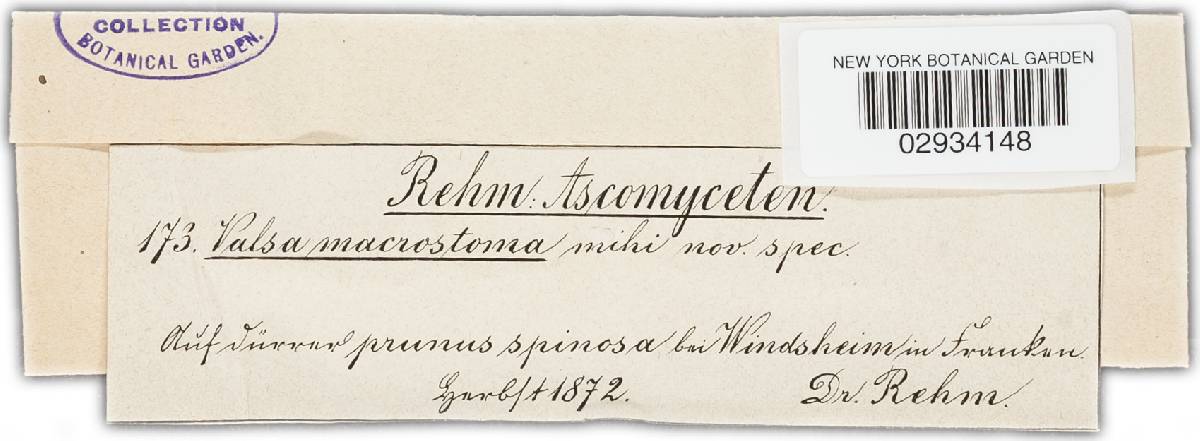 COLLECTION
BOTANICAL GARDEN.
NEW YORK BOTANICAL GARDEN
02934148
Rehm: Ascomyceten.
173. Valsa macrostoma mihi nov. spec.
Auf dürrer prunus spinosa bei Windsheim in Franken.
Herbst 1872.
Dr. Rehm.